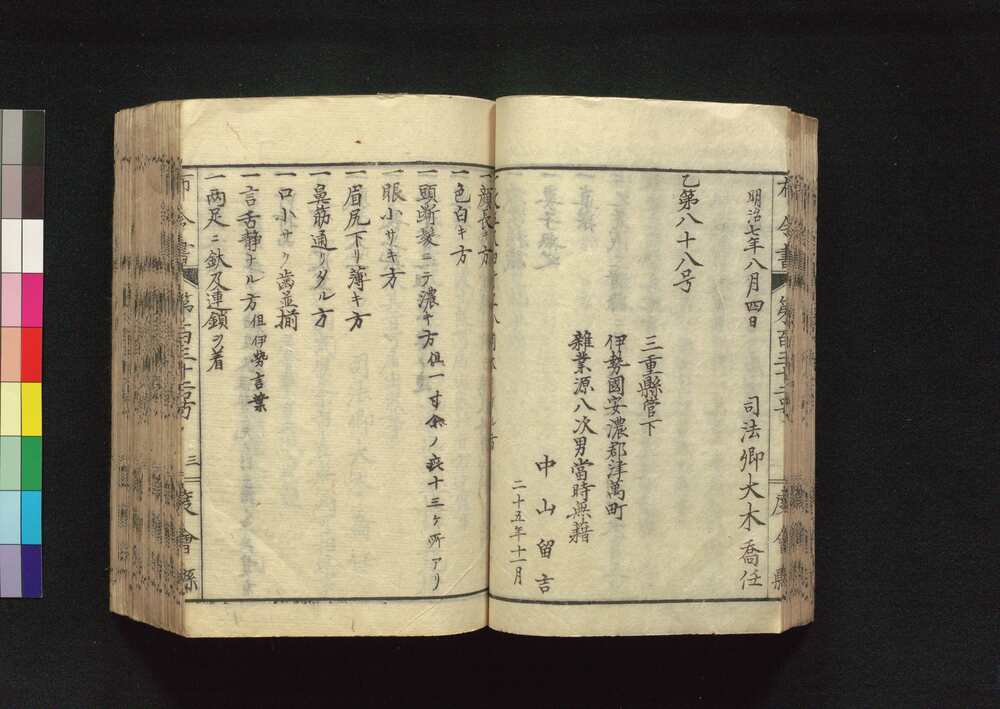 布令書 第百三十二号 度會縣
明治七年八月四日
司法卿大木喬任
乙第八十八号
三重縣管下
伊勢國安濃郡津萬町
雜業源八次男當時無籍
中山留吉
二十五年十一月
一顔長キ方
一色白キ方
一頭斷髪ニテ濃キ方但一寸余ノ疵十三ヶ所アリ
一眼小サキ方
一眉尻下リ薄キ方
一鼻筋通リタル方
一口小サク歯並揃
一言舌静ナル方但伊勢言葉
一両足ニ鈦及連鎖ヲ着
布令書 第百三十二号 三 度會縣